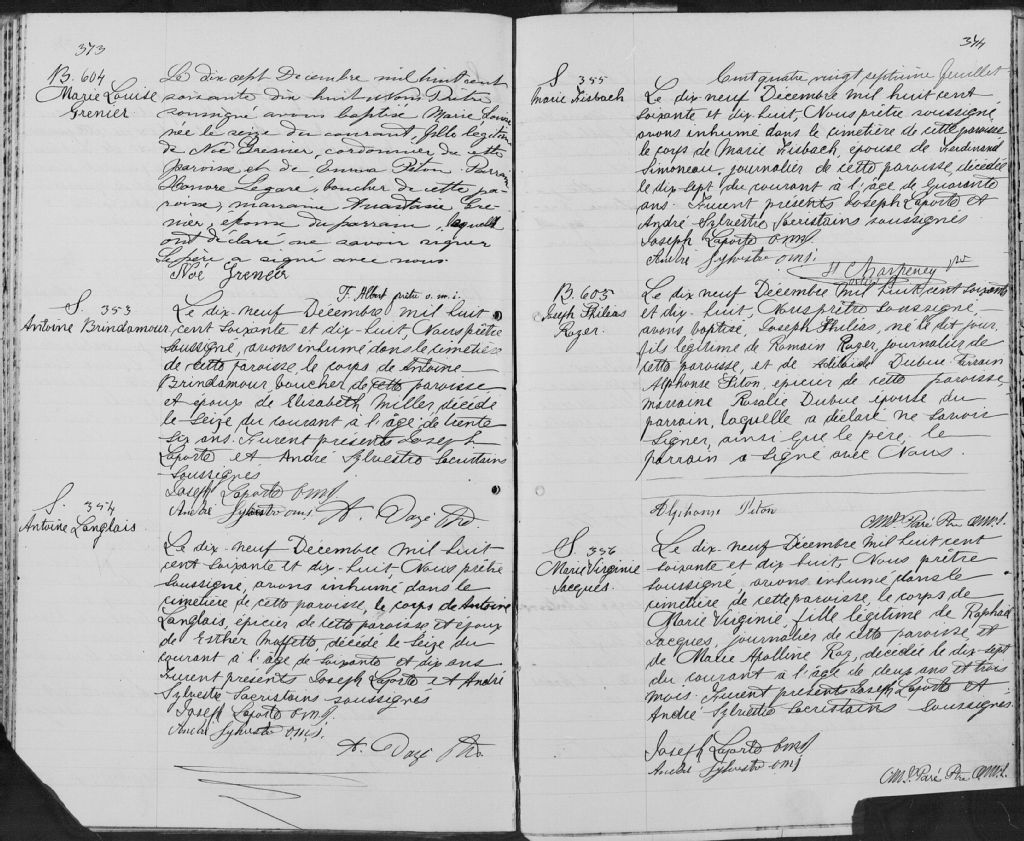 373
B. 604
Marie Louise
Grenier
Le dix sept Decembre mil huit cent
soixante dix huit Nous Prêtre
soussigné avons baptisé Marie Louise
née le seize du courant, fille legitime
de Noé Grenier, cordonnier de cette
paroisse et de Emma Piton. Parrain
Honoré Legaré, boucher de cette pa
roisse, marraine Anastasie Gre
nier, épouse du parrain, lesquels
ont déclaré ne savoir signer
Le père a signé avec nous.
Noé Grenier
F. Albert prêtre o.m.i.
S. 353
Antoine Brindamour
Le dix-neuf Décembre mil huit
cent soixante et dix-huit, Nous prêtre
soussigné, avons inhumé dans le cimetière
de cette paroisse, le corps de Antoine
Brindamour, boucher de cette paroisse
et époux de Elisabeth Miller, décédé
le seize du courant à l'âge de trente
six ans. Furent presents Joseph
Laporte et André Sylvestre Sacristains
soussignés
Joseph Laporte OMI
André Sylvestre omi.
A. Dozé Ptre.
S. 354
Antoine Langlais
Le dix-neuf Décembre mil huit
cent soixante et dix-huit, Nous prêtre
soussigné, avons inhumé dans le
cimetière de cette paroisse, le corps de Antoine
Langlais, épicier de cette paroisse et époux
de Esther Moffette, décédé le seize du
courant à l'âge de soixante et dix ans
Furent presents Joseph Laporte et André
Sylvestre Sacristains soussignés
Joseph Laporte OMI
André Sylvestre o.m.i.
A. Dozé Ptre.
374
Cent quatre vingt septieme feuillet
S 355
Marie Fisbach
Le dix neuf Décembre mil huit cent
soixante et dix-huit, Nous prêtre soussigné
avons inhumé dans le cimetière de cette paroisse
le corps de Marie Fisbach, épouse de Ferdinand
Simoneau, journalier de cette paroisse, décédée
le dix-sept du courant à l'âge de Quarante
ans. Furent presents Joseph Laporte et
André Sylvestre Sacristains soussignés
Joseph Laporte OMI
André Sylvestre omi.
H Charpeney Ptre
B. 605
Joseph Philias
Roger
Le dix neuf Décembre mil huit cent soixante
et dix-huit, Nous prêtre soussigné,
avons baptisé, Joseph Philias, né le dit jour,
fils légitime de Romain Roger, journalier de
cette paroisse, et de Adelaide Dubue. Parrain
Alphonse Piton, épicier de cette paroisse,
marraine Rosalie Dubue épouse du
parrain, laquelle a déclaré ne savoir
signer, ainsi que le père, le
parrain a signé avec Nous.
Alphonse Piton
Ml. Paré Ptre OMI.
S. 356
Marie Virginie
Jacques
Le dix-neuf Décembre mil huit cent
soixante et dix huit, Nous prêtre
soussigné, avons inhumé dans le
cimetière de cette paroisse, le corps de
Marie Virginie, fille légitime de Raphael
Jacques, journalier de cette paroisse, et
de Marie Apolline Roy, décédée le dix-sept
du courant à l'âge de deux ans et trois
mois. Furent presents Joseph Laporte et
André Sylvestre Sacristains soussignés.
Joseph Laporte OMI
André Sylvestre OMI
Ml. Paré Ptre OMI.